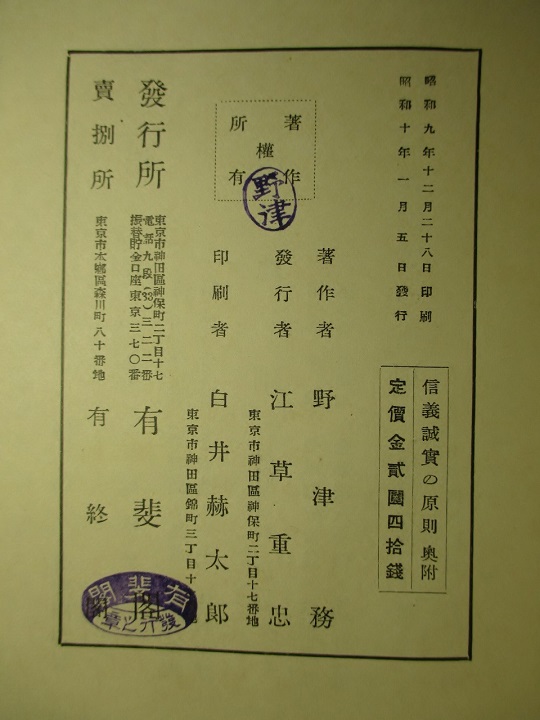 昭和九年十二月二十八日印刷
昭和十年一月五日發行
信義誠實の原則 奥附
定價金貳圓四拾錢
著作
權
所有
野津
著作者 野津務
發行者 江草重忠
東京市神田區神保町二丁目十七番地
印刷者 白井赫太郎
東京市神田區錦町三丁目十
發行所
東京市神田區神保町二丁目十七
電話九段(33)三二二番
振替貯金口座東京三七〇番
有斐閣
賣捌所
東京市本鄕區森川町八十番地
有終閣
有斐閣
發行之章